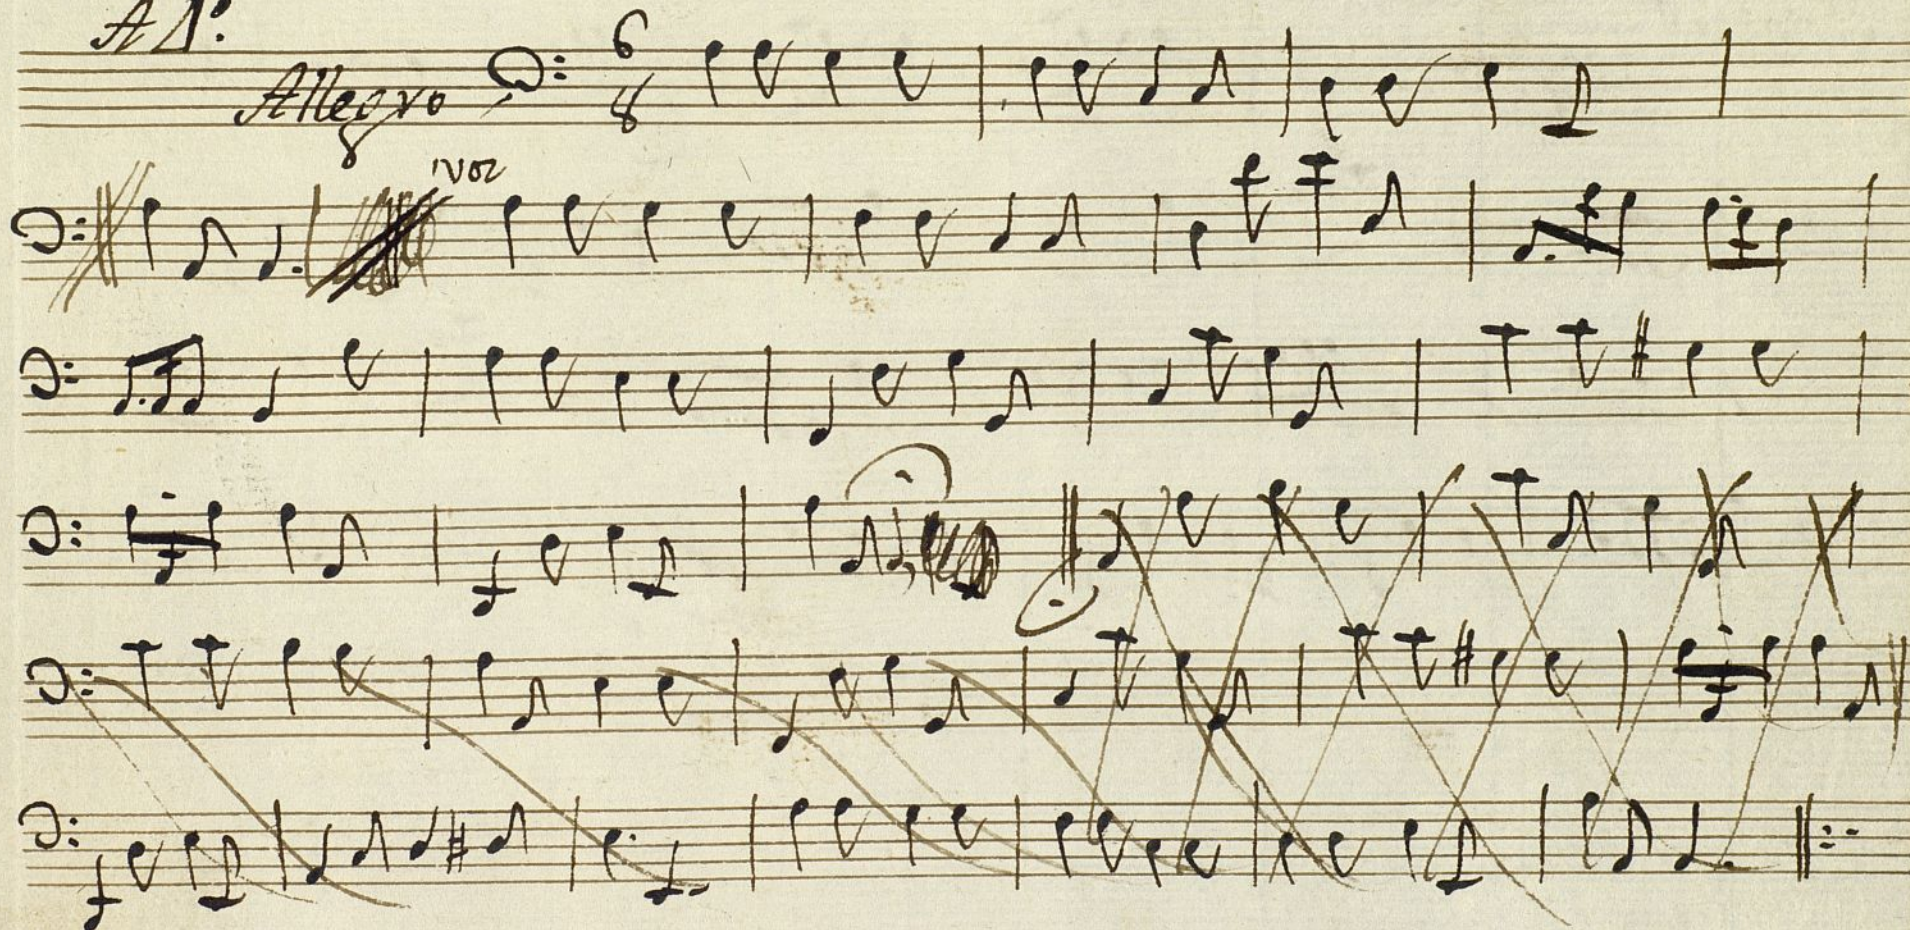 A Dº.
Allegro 6
8
voz